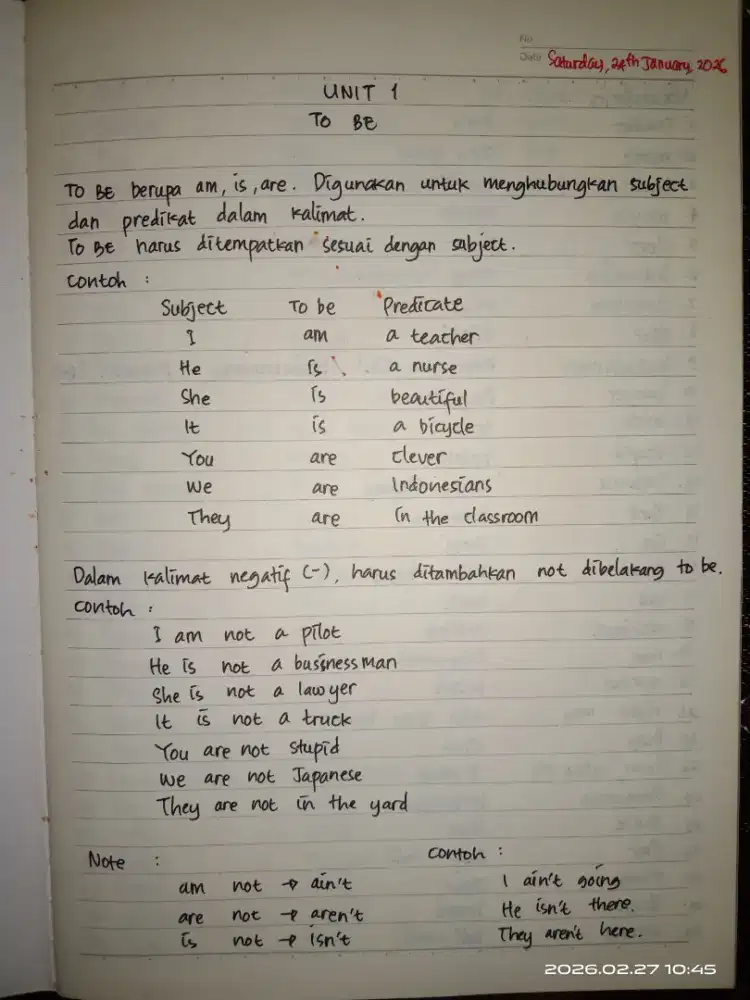 No
Date Saturday, 24th January, 2026
UNIT 1
TO BE
TO BE berupa am, is, are. Digunakan untuk menghubungkan subject
dan predikat dalam kalimat.
TO BE harus ditempatkan sesuai dengan subject.
Contoh :
Subject To be Predicate
I am a teacher
He is a nurse
She is beautiful
It is a bicycle
You are clever
We are Indonesians
They are in the classroom
Dalam kalimat negatif (-), harus ditambahkan not dibelakang to be.
Contoh :
I am not a pilot
He is not a bussinessman
She is not a lawyer
It is not a truck
You are not stupid
We are not Japanese
They are not in the yard
Note : Contoh :
am not → ain't I ain't going
are not → aren't He isn't there.
is not → isn't They aren't here.
2026.02.27 10:45